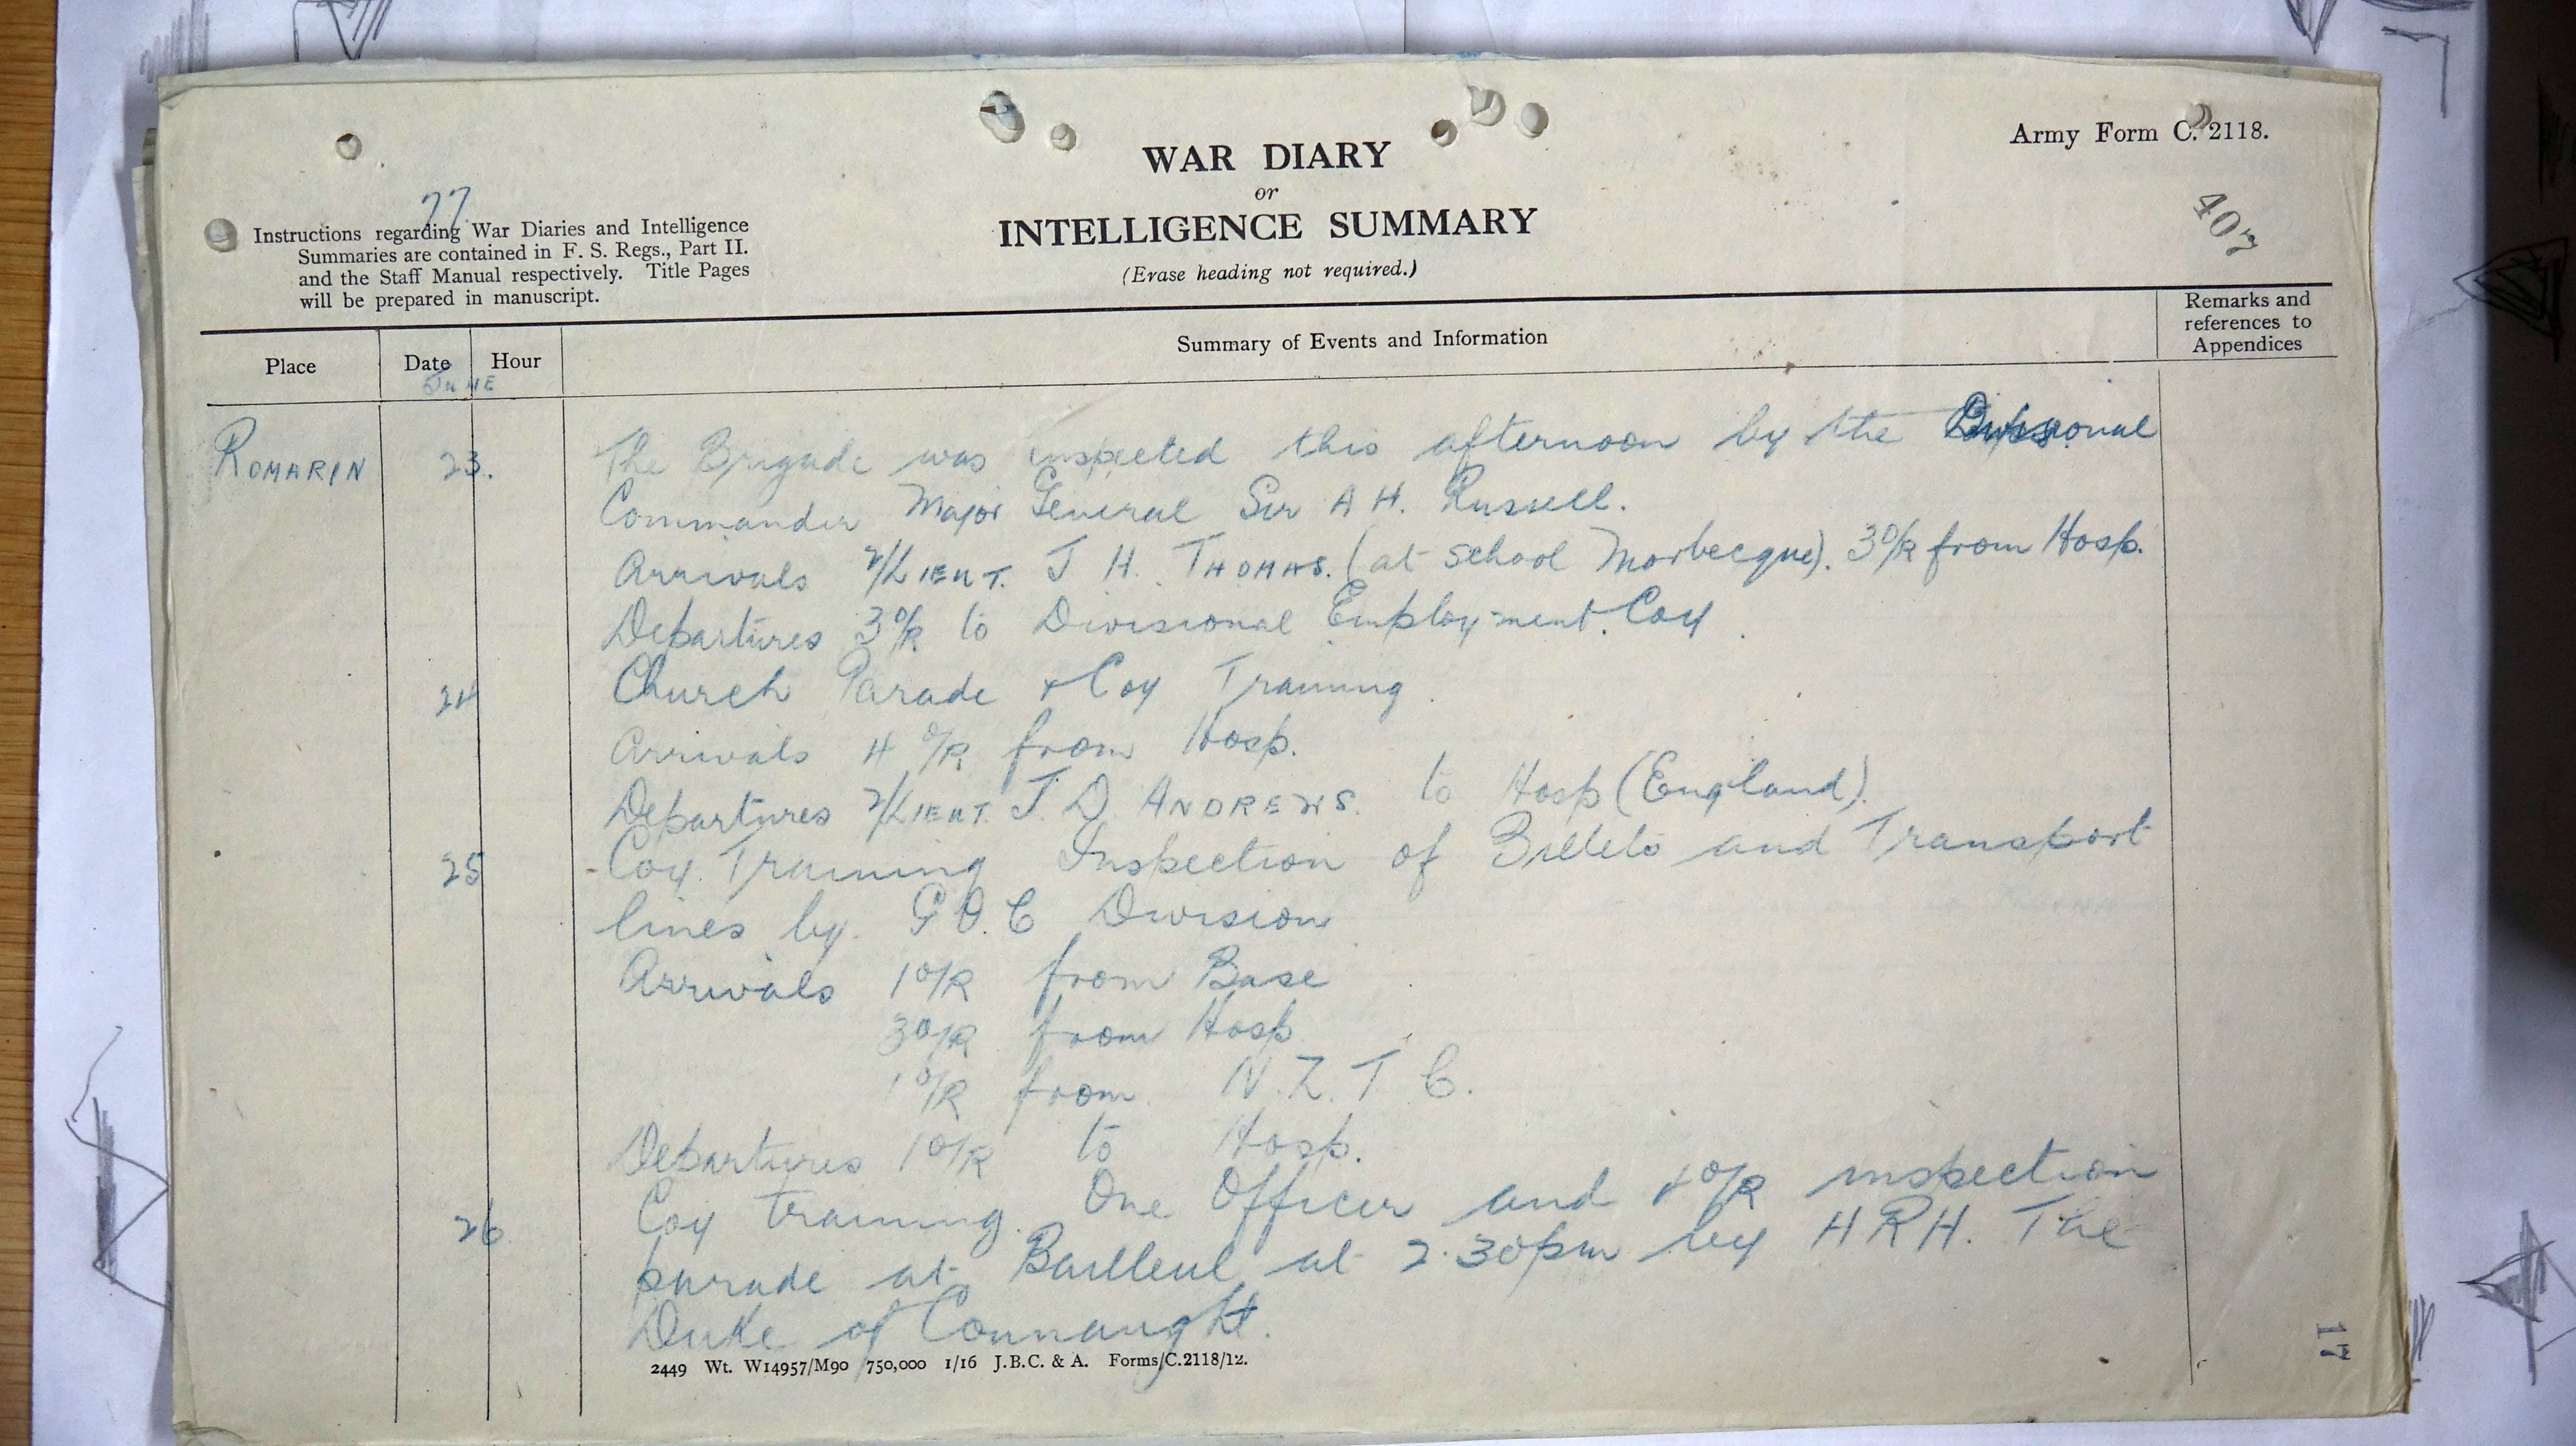 Army Form C. 2118.
WAR DIARY
or
INTELLIGENCE SUMMARY
(Erase heading not required.)
407
77
Instructions regarding War Diaries and Intelligence
Summaries are contained in F. S. Regs., Part II.
and the Staff Manual respectively. Title Pages
will be prepared in manuscript.
Place Date Hour Summary of Events and Information Remarks and references to Appendices
JUNE
ROMARIN 23. The Brigade was inspected this afternoon by the Divisional
Commander Major General Sir A H. Russell.
Arrivals 2/LIEUT. J H. THOMAS. (at school Morbecque). 3 O/R from Hosp.
Departures 3 O/R to Divisional Employment. Coy.
24 Church Parade + Coy Training.
Arrivals 4 O/R from Hosp.
Departures 2/LIEUT. J. D. ANDREWS. to Hosp (England).
25 Coy. Training Inspection of Billets and Transport
lines by. G O. C Division
Arrivals 1 O/R from Base
3 O/R from Hosp
1 O/R from N. Z. T C.
Departures 1 O/R to Hosp.
26 Coy training. One Officer and O/R inspection
parade at Bailleul at 2.30pm by H R H. The
Duke of Connaught.
2449 Wt. W14957/M90 750,000 1/16 J.B.C. & A. Forms/C.2118/12.
17